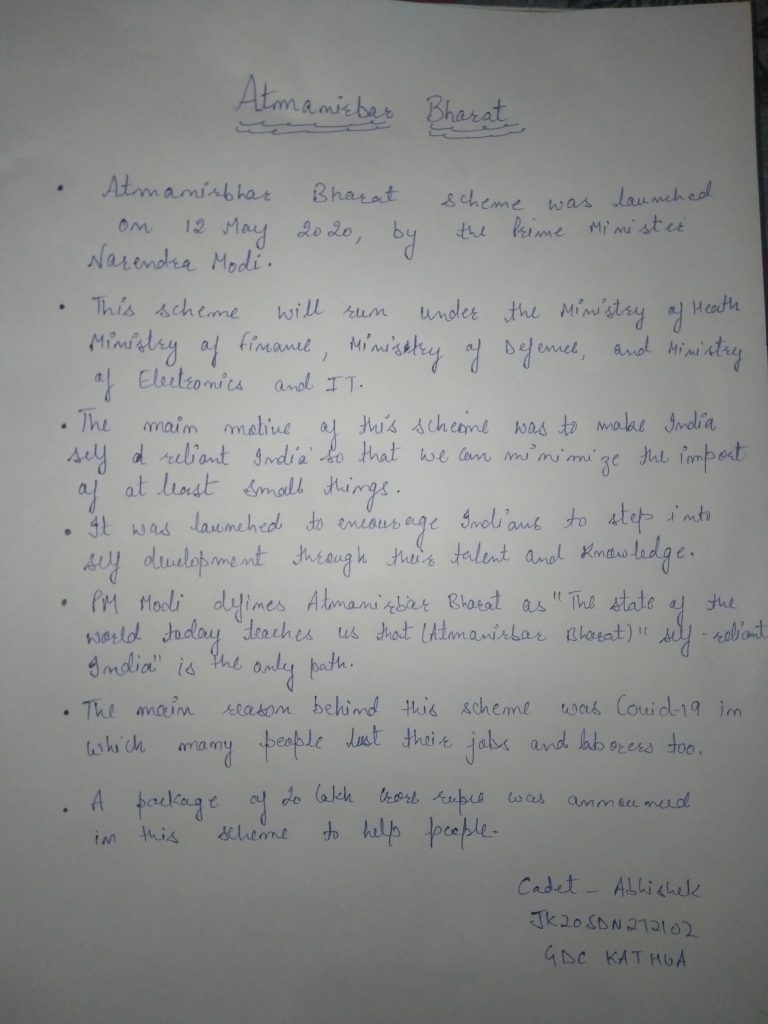 Atmanirbar Bharat
• Atmanirbhar Bharat scheme was launched
on 12 May 2020, by the Prime Minister
Narendra Modi.
• This scheme will run under the Ministry of Heath
Ministry of finance, Ministry of Defence, and Ministry
of Electronics and IT.
• The main motive of this scheme was to make India
self d reliant India so that we can minimize the import
of at least small things.
• It was launched to encourage Indians to step into
self development through their talent and knowledge.
• PM Modi defines Atmanirbar Bharat as "The state of the
world today teaches us that (Atmanirbar Bharat)" self-reliant
India" is the only path.
• The main reason behind this scheme was Covid-19 in
which many people lost their jobs and laborers too.
• A package of 20 lakh crore rupee was announced
in this scheme to help people.
Cadet - Abhishek
JK20SDN272102
GDC KATHUA